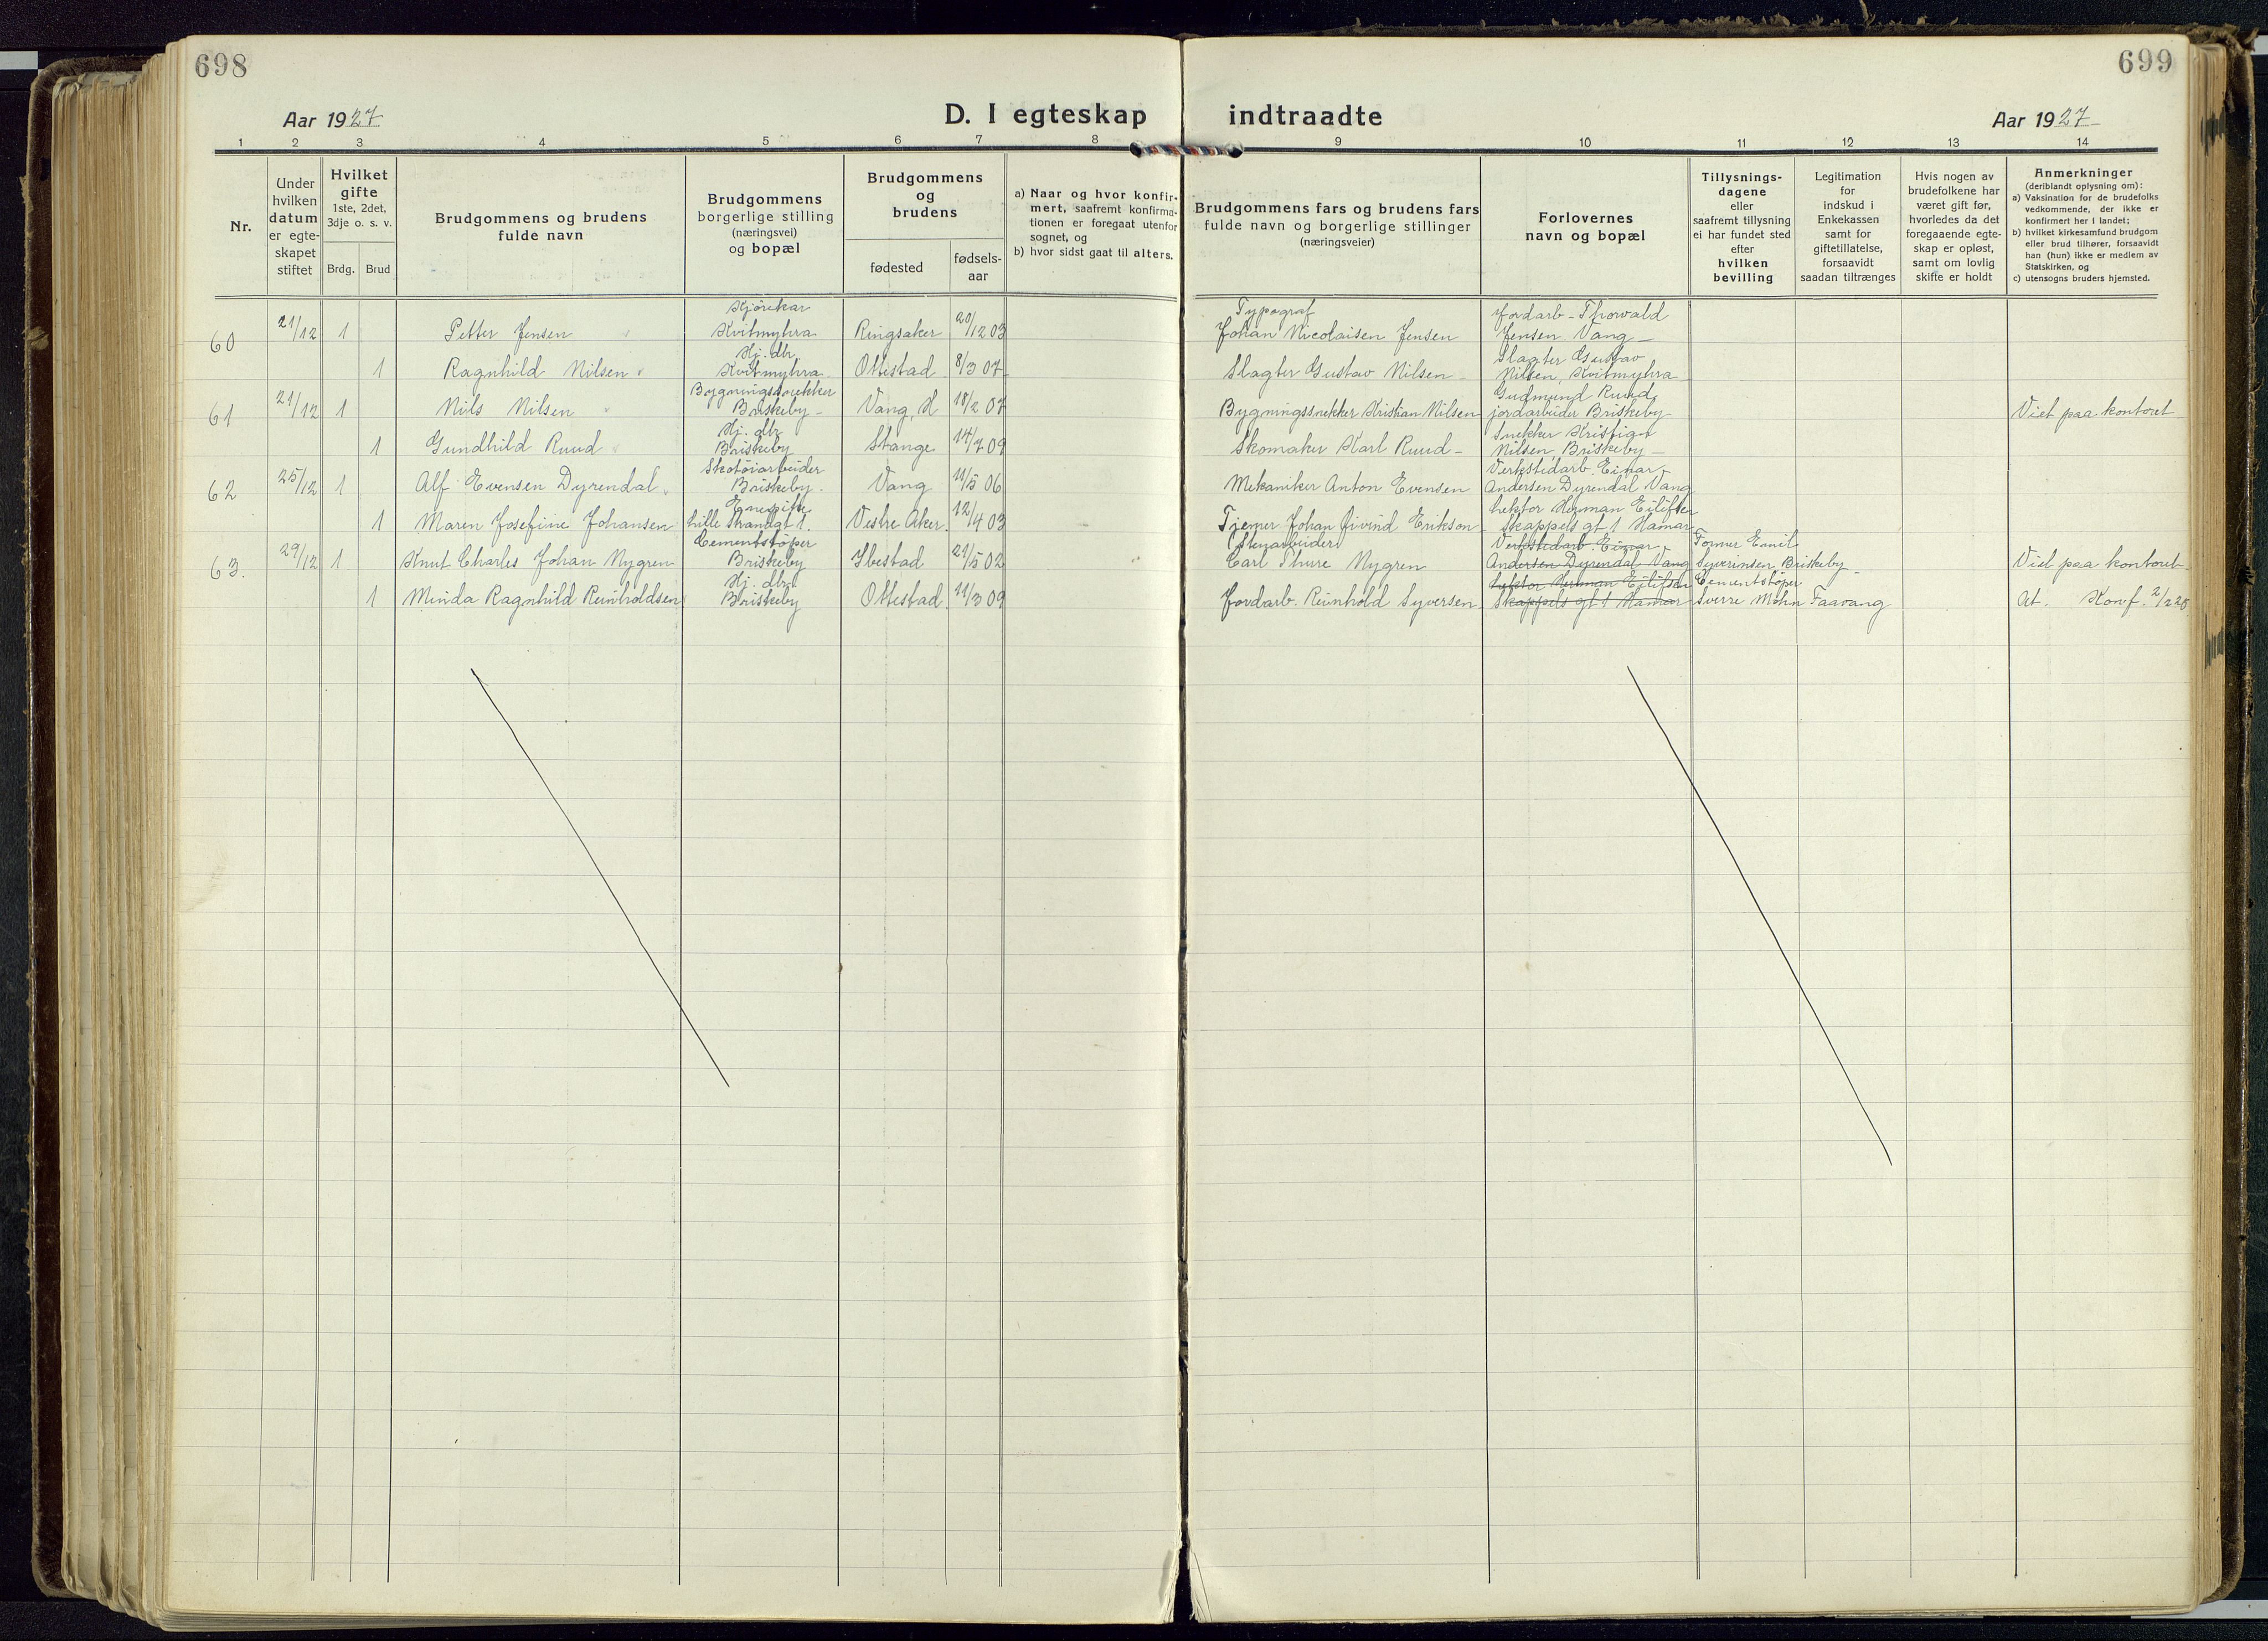 698
699
Aar 1927
D. I egteskap indtraadte
Aar 1927
1 2 3 4 5 6 7 8 9 10 11 12 13 14
Nr.
Under hvilken datum er egte-skapet stiftet
Hvilket gifte
1ste, 2det, 3dje o. s. v.
Brdg. Brud
Brudgommens og brudens fulde navn
Brudgommens borgerlige stilling (næringsvei) og bopæl
Brudgommens og brudens
fødested
fødsels-aar
a) Naar og hvor konfir-mert, saafremt konfirma-tionen er foregaat utenfor sognet, og
b) hvor sidst gaat til alters.
Brudgommens fars og brudens fars fulde navn og borgerlige stillinger (næringsveier)
Forlovernes navn og bopæl
Tillysnings-dagene eller saafremt tillysning ei har fundet sted efter hvilken bevilling
Legitimation for indskud i Enkekassen samt for giftetillatelse, forsaavidt saadan tiltrænges
Hvis nogen av brudefolkene har været gift før, hvorledes da det foregaaende egte-skap er opløst, samt om lovlig skifte er holdt
Anmerkninger
(deriblandt oplysning om):
a) Vaksination for de brudefolks vedkommende, der ikke er konfirmert her i landet;
b) hvilket kirkesamfund brudgom eller brud tilhører, forsaavidt han (hun) ikke er medlem av Statskirken, og
c) utensogns bruders hjemsted.
60 21/12 1 Petter Jensen Kjörekar Kvitmyhra Ringsaker 20/12 03 Typograf Johan Nicolaisen Jensen Jordarb - Thorvald Jensen Vang -
1 Ragnhild Nilsen Hj. dtr. Kvitmyhra Ottestad 8/3 07 Slagter Gustav Nilsen Slagter Gustav Nilsen, Kvitmyhra
61 21/12 1 Nils Nilsen Bygningssnekker Briskeby - Vang, H 18/2 07 Bygningssnekker Kristian Nilsen Gudmund Ruud, jordarbeider Briskeby- Viet paa kontoret
1 Gundhild Ruud Hj. dtr. Briskeby Stange 14/7 09 Skomaker Karl Ruud - Snekker Kristian Nilsen, Briskeby -
62 25/12 1 Alf Evensen Dyrendal Skotöiarbeider Briskeby. Vang 11/5 06 Mekaniker Anton Evensen Verkstedarb. Einar Andersen Dyrendal Vang
1 Maren Josefine Johansen Lille Strandgt 1. Vestre Aker. 12/4 03 Johan Eivind Erikson Lektor Herman Eilifsen Skappels gt 1 Hamar
63. 29/12 1 Knut Charles Johan Nygren Cementstöper Briskeby Ibestad 21/5 02 (Stenarbeider) Carl Thure Nygren Verkstedarb. Einar Andersen Dyrendal Vang Former Emil Syverinsen Briskeby - Viet paa kontoret
1 Minda Ragnhild Reinholdsen Hj. dtr. Briskeby Ottestad 11/3 09 Jordarb. Reinhold Syversen Lektor Herman Eilifsen Skappels gt 1 Hamar Cementstöper Sverre Mohn Faavang At. Konf. 2/2 28